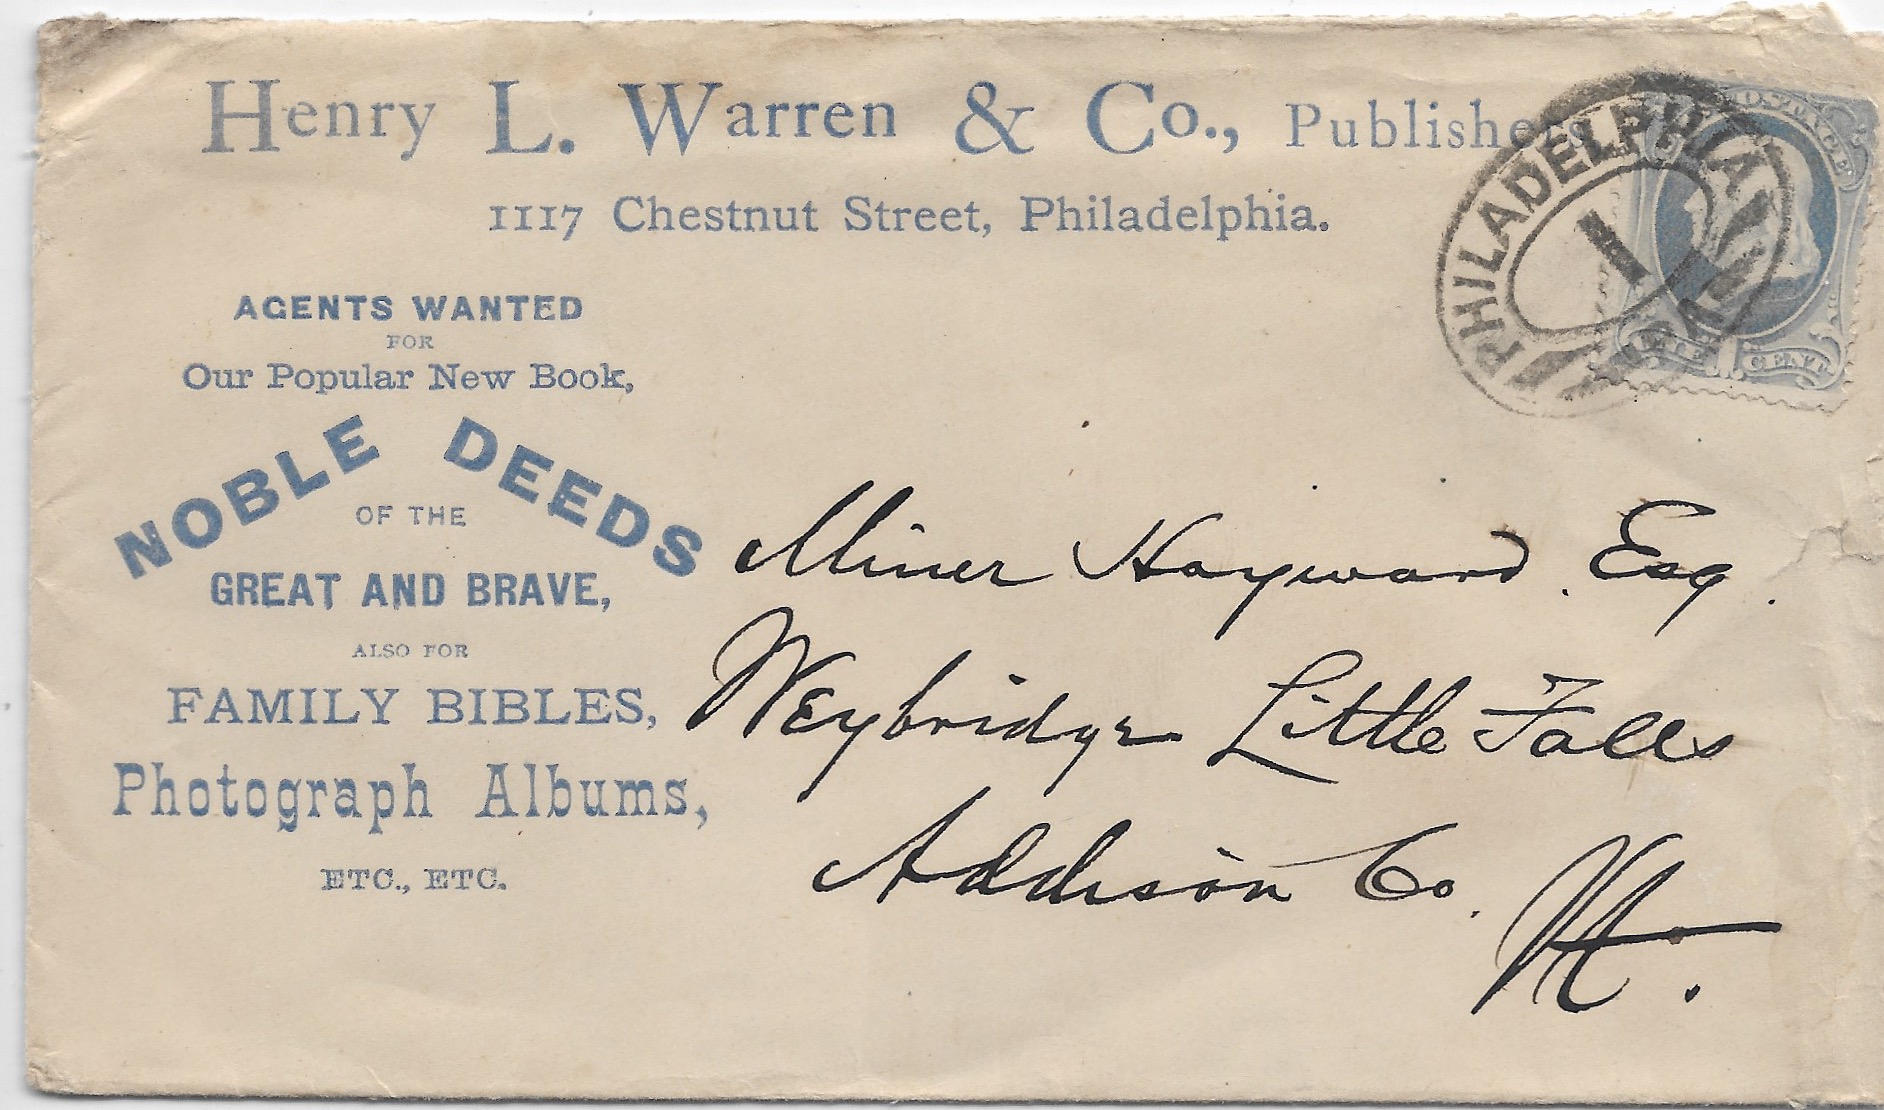 Henry L. Warren & Co., Publishers,
1117 Chestnut Street, Philadelphia.
AGENTS WANTED
FOR
Our Popular New Book,
NOBLE DEEDS
OF THE
GREAT AND BRAVE,
ALSO FOR
FAMILY BIBLES,
Photograph Albums,
ETC., ETC.
PHILADELPHIA
1
POSTAGE
ONE 1 CENT
Miner Hayward. Esq.
Weybridge Little Falls
Addison Co.
Vt.